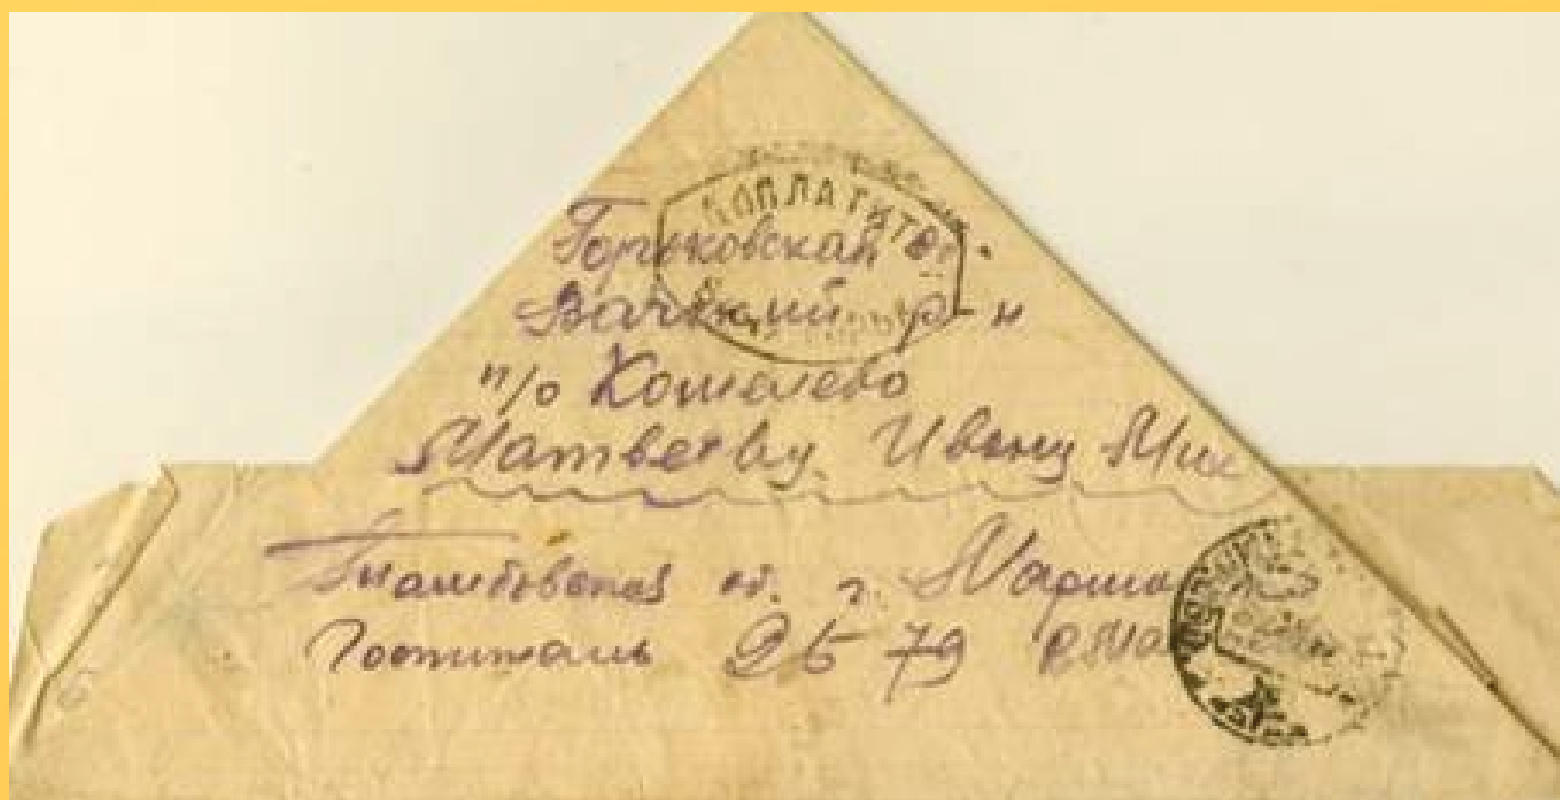 ДОПЛАТИТЬ
Горьковская об.
Вачский р-н
п/о Кошелево
Матвееву Ивану Мих
Тамбовская об. г.
Госпиталь 2679